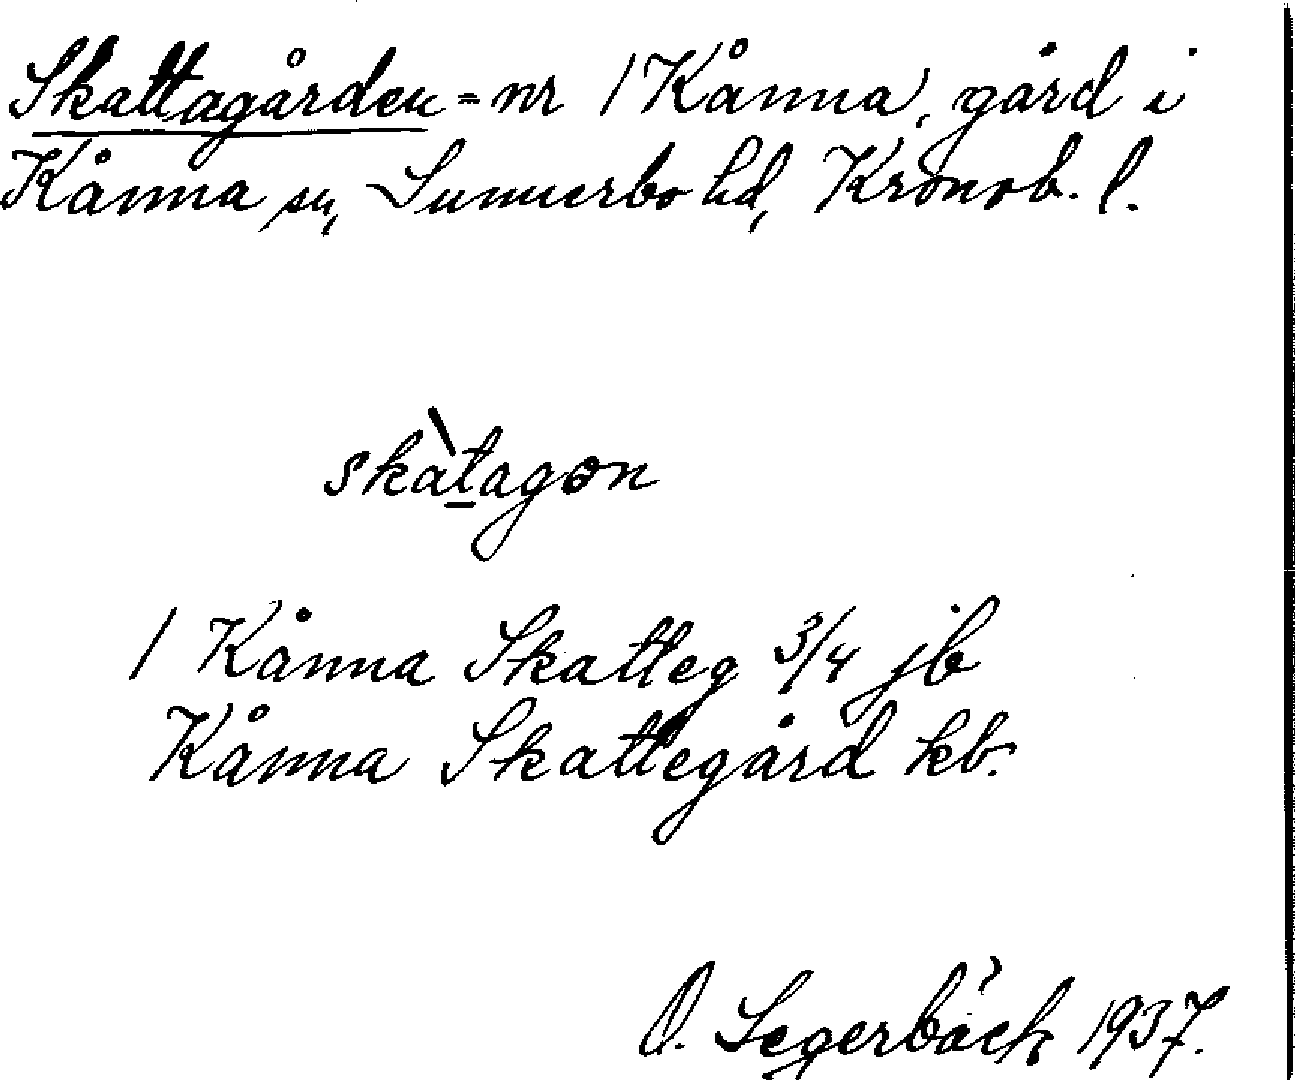 Skattagården = nr 1 Kånna, gård i
Kånna sn, Sunnerbo hd, Kronob. l.
skàtagɔn
1 Kånna Skatteg 3/4 jb
Kånna Skattegård kb.
O. Segerbäck 1937.